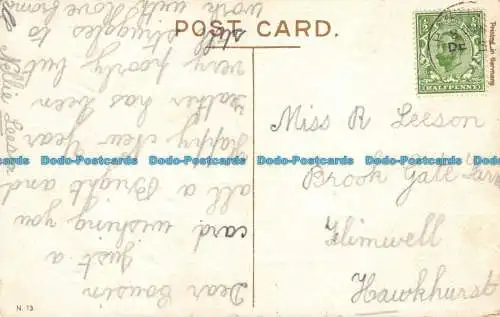 POST CARD.
HALFPENNY
Printed in Germany
Miss R Leeson
Brook Gate Farm
Flimwell
Hawkhurst
Dear Cousin
just a
card wishing you
all a Bright and
happy New Year
Father has been
very poorly but
still struggles to
work with love from
Nellie Leeson
N. 13
Dodo-Postcards Dodo-Postcards Dodo-Postcards Dodo-Postcards Dodo-Postcards